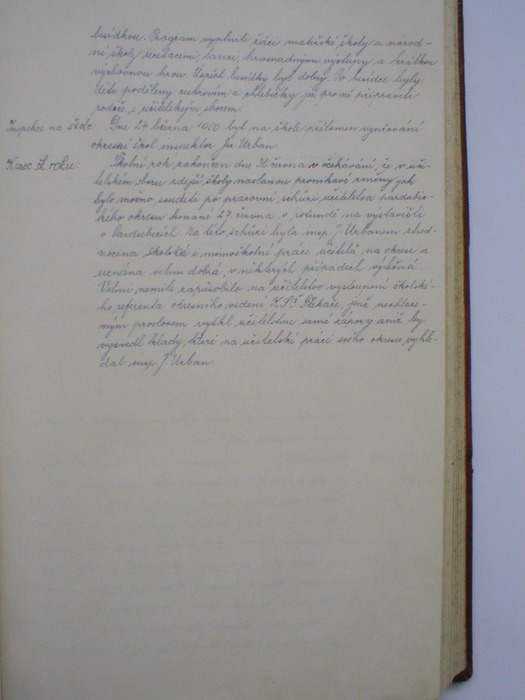 besídkou. Program vyplnili žáci mateřské školy a národ-
ní školy recitacemi, tanci, hromadnými výstupy a krátkou
výchovnou hrou. Úspěch besídky byl dobrý. Po besídce byly
děti poděleny cukrovím a chlebíčky jež pro ně připravili
rodiče s učitelským sborem.
Inspekce na škole. Dne 24. června 1960 byl na škole přítomen vyučování
okresní škol. inspektor Jar. Urban.
Konec šk. roku. Školní rok zakončen dne 30. června v očekávání, že v uči-
telském sboru zdejší školy nastanou pronikavé změny jak
bylo možno souditi po pracovní schůzi učitelstva pardubic-
kého okresu konané 27. června v rotundě na výstavišti
v Pardubicích. Na této schůzi byla insp. J. Urbanem zhod-
nocena školská i mimoškolní práce učitelů na okrese a
uznána velmi dobrá, v některých případech výtečná.
Velmi nemile zapůsobilo na učitelstvo vystoupení školské-
ho referenta okresního vedení KSČ Plekače, jenž neohlase-
ným proslovem vytkl učitelstvu samé zápory aniž by
vyzvedl klady, které na učitelské práci svého okresu vyhle-
dal insp. J. Urban.